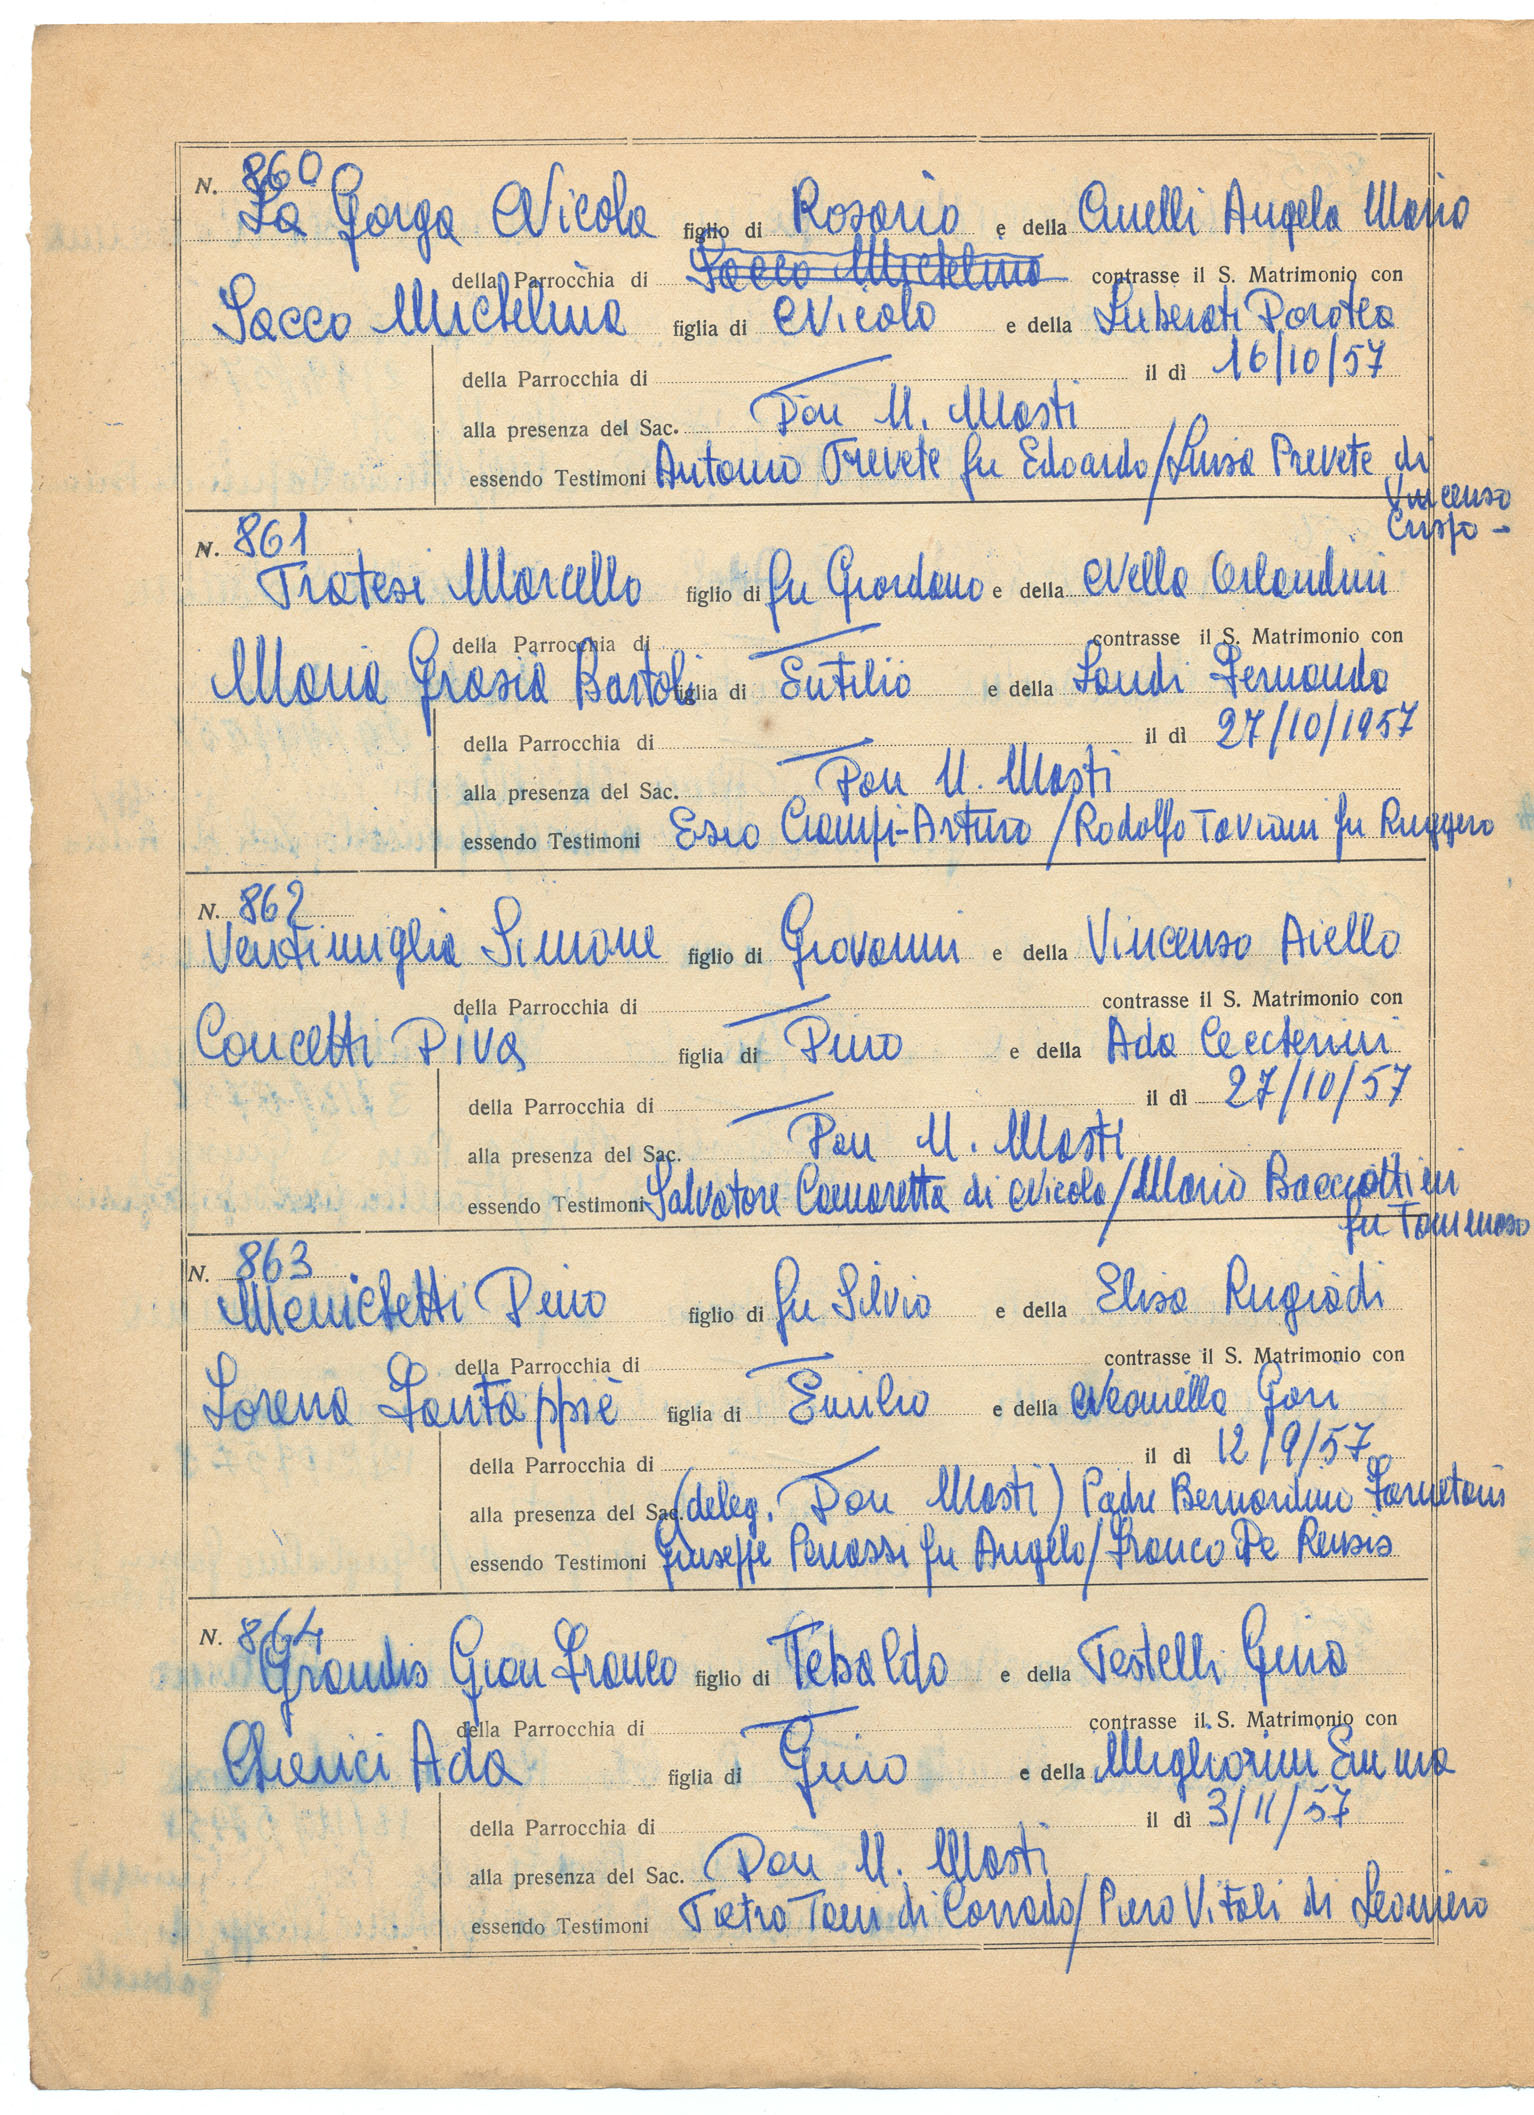 N. 860
La Gorga Nicola figlio di Rosario e della Anelli Angela Maria
della Parrocchia di Sacco Michelina contrasse il S. Matrimonio con
Sacco Michelina figlia di Nicola e della Liberati Dorotea
della Parrocchia di il dì 16/10/57
alla presenza del Sac. Don U. Masti
essendo Testimoni Antonio Prevete fu Edoardo/Luisa Prevete di
Vincenzo
Crispo -
N. 861
Pratesi Marcello figlio di fu Giordano e della Nella Orlandini
della Parrocchia di contrasse il S. Matrimonio con
Maria Grazia Bartoli figlia di Eutilio e della Landi Fernanda
della Parrocchia di il dì 27/10/1957
alla presenza del Sac. Don U. Masti
essendo Testimoni Ezio Ciampi-Arturo/Rodolfo Taviani fu Ruggero
N. 862
Ventimiglia Simone figlio di Giovanni e della Vincenza Aiello
della Parrocchia di contrasse il S. Matrimonio con
Concetti Diva figlia di Dino e della Ada Ceccherini
della Parrocchia di il dì 27/10/57
alla presenza del Sac. Don U. Masti
essendo Testimoni Salvatore Camaretta di Nicola/Mario Bacciottini
fu Tommaso
N. 863
Menichetti Dino figlio di fu Silvio e della Elisa Rugiadi
della Parrocchia di contrasse il S. Matrimonio con
Lorena Santappiè figlia di Emilio e della Neomella Gori
della Parrocchia di il dì 12/9/57
alla presenza del Sac. (deleg. Don Masti) Padre Bernardino Farnetani
essendo Testimoni Giuseppe Panassi fu Angelo/Franco De Rensis
N. 864
Grandis Gian Franco figlio di Tebaldo e della Testelli Gina
della Parrocchia di contrasse il S. Matrimonio con
Chienici Ada figlia di Gino e della Migliorini Emma
della Parrocchia di il dì 3/11/57
alla presenza del Sac. Don U. Masti
essendo Testimoni Pietro Tani di Corrado/Piero Vitali di Leoniero